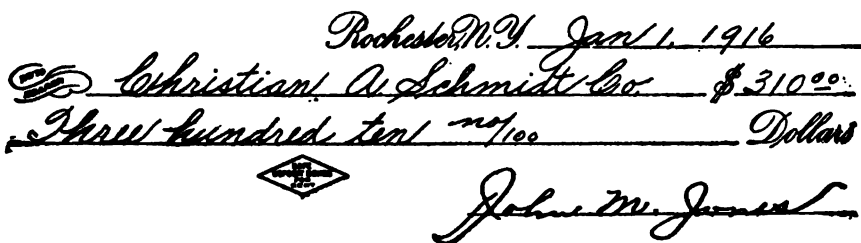 Rochester, N.Y. Jan 1, 1916
Christian A Schmidt Co. $310⁰⁰
Three hundred ten no/100 Dollars
John M. Jones